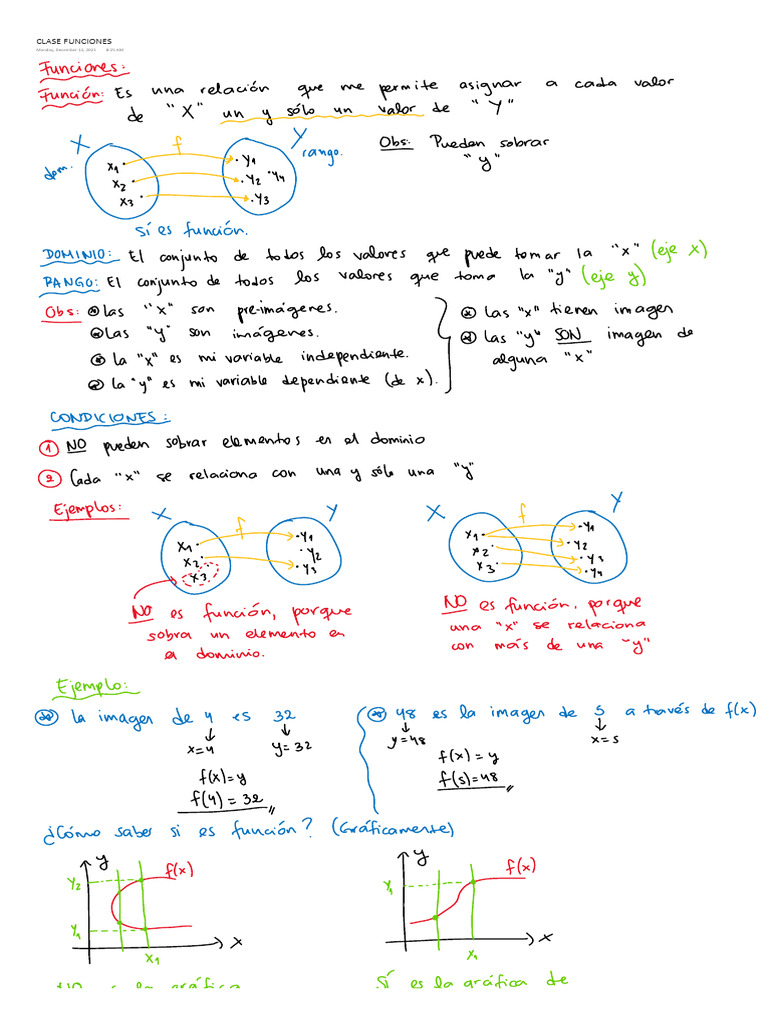 CLASE FUNCIONES
Monday, December 13, 2021 8:35 AM
Funciones:
Función: Es una relación que me permite asignar a cada valor
de "X" un y sólo un valor de "Y"
X f Y
dom. rango.
x₁ y₁
x₂ y₂ y₄
x₃ y₃
Obs: Pueden sobrar
"y"
Sí es función.
DOMINIO: El conjunto de todos los valores que puede tomar la "x" (eje x)
RANGO: El conjunto de todos los valores que toma la "y" (eje y)
Obs: Las "x" son pre-imágenes.
Las "y" son imágenes.
la "x" es mi variable independiente.
la "y" es mi variable dependiente (de x).
Las "x" tienen imagen
Las "y" SON imagen de
alguna "x"
CONDICIONES:
1 NO pueden sobrar elementos en el dominio
2 Cada "x" se relaciona con una y sólo una "y"
Ejemplos:
X f Y
x₁ y₁
x₂ y₂
x₃ y₃
NO es función, porque
sobra un elemento en
el dominio.
X f Y
x₁ y₁
x₂ y₂
x₃ y₃
y₄
NO es función, porque
una "x" se relaciona
con más de una "y"
Ejemplo:
la imagen de 4 es 32
x=4 y=32
f(x)=y
f(4)=32
48 es la imagen de 5 a través de f(x)
y=48 x=5
f(x)=y
f(5)=48
¿Cómo saber si es función? (Gráficamente)
y
f(x)
y₂
y₁
x₁
x
y
f(x)
y₁
x₁
x
Sí es la gráfica de